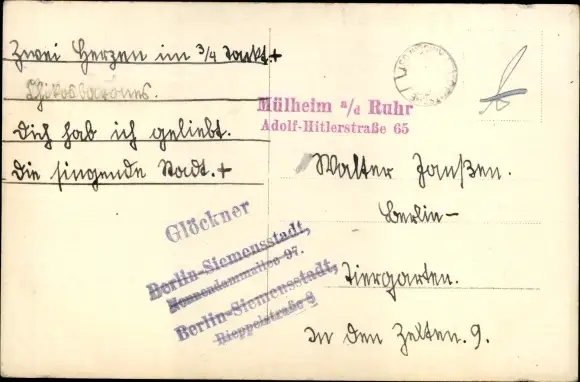 Zwei Herzen im 3/4 Takt. +
Dich hab ich geliebt.
Die singende Stadt. +
Mülheim a/d Ruhr
Adolf-Hitlerstraße 65
Walter Janßen.
Berlin-
Tiergarten.
In den Zelten. 9.
Glöckner
Berlin-Siemensstadt,
Nonnendammallee 97.
Berlin-Siemensstadt,
Rieppelstraße 8